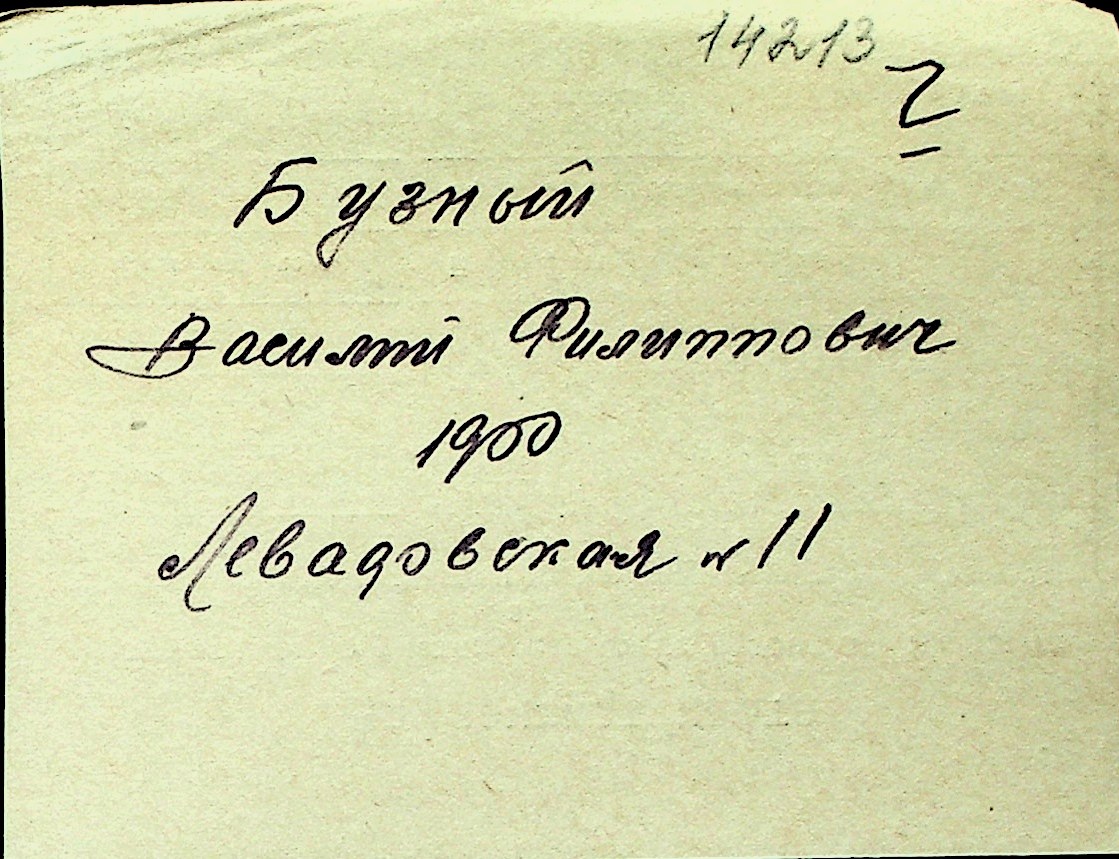 14213
Бузный
Василий Филиппович
1900
Левадовская № 11